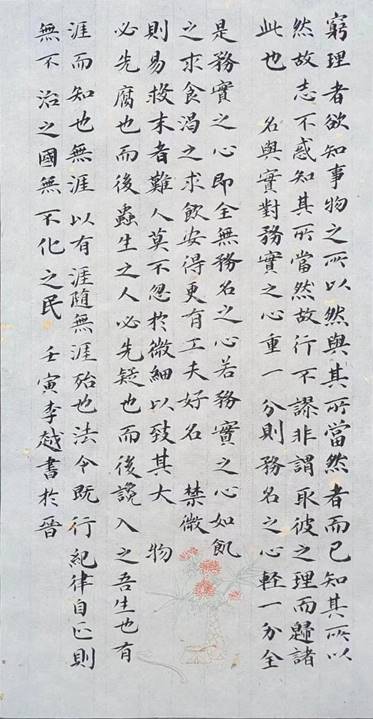 窮理者欲知事物之所以然與其所當然者而已知其所以
然故志不惑知其所當然故行不謬非謂取彼之理而歸諸
此也　名與實對務實之心重一分則務名之心輕一分全
是務實之心即全無務名之心若務實之心如飢
之求食渴之求飲安得更有工夫好名　禁微
則易救末者難人莫不忽於微細以致其大　物
必先腐也而後蟲生之人必先疑也而後讒入之吾生也有
涯而知也無涯以有涯隨無涯殆也法令既行紀律自正則
無不治之國無不化之民　壬寅李越書於晉